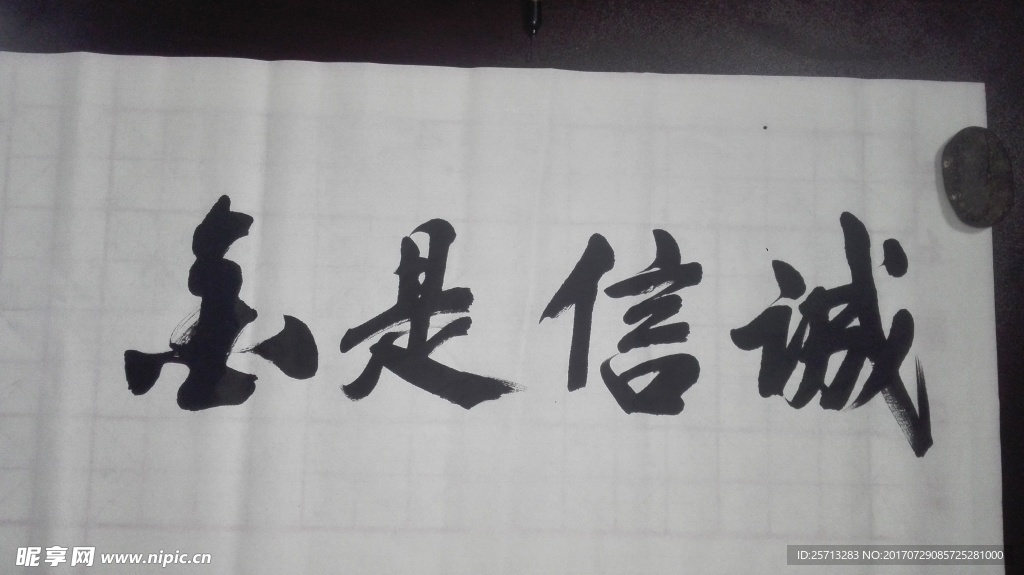 诚信是金
昵享网 www.nipic.cn
ID:25713283 NO:20170729085725281000